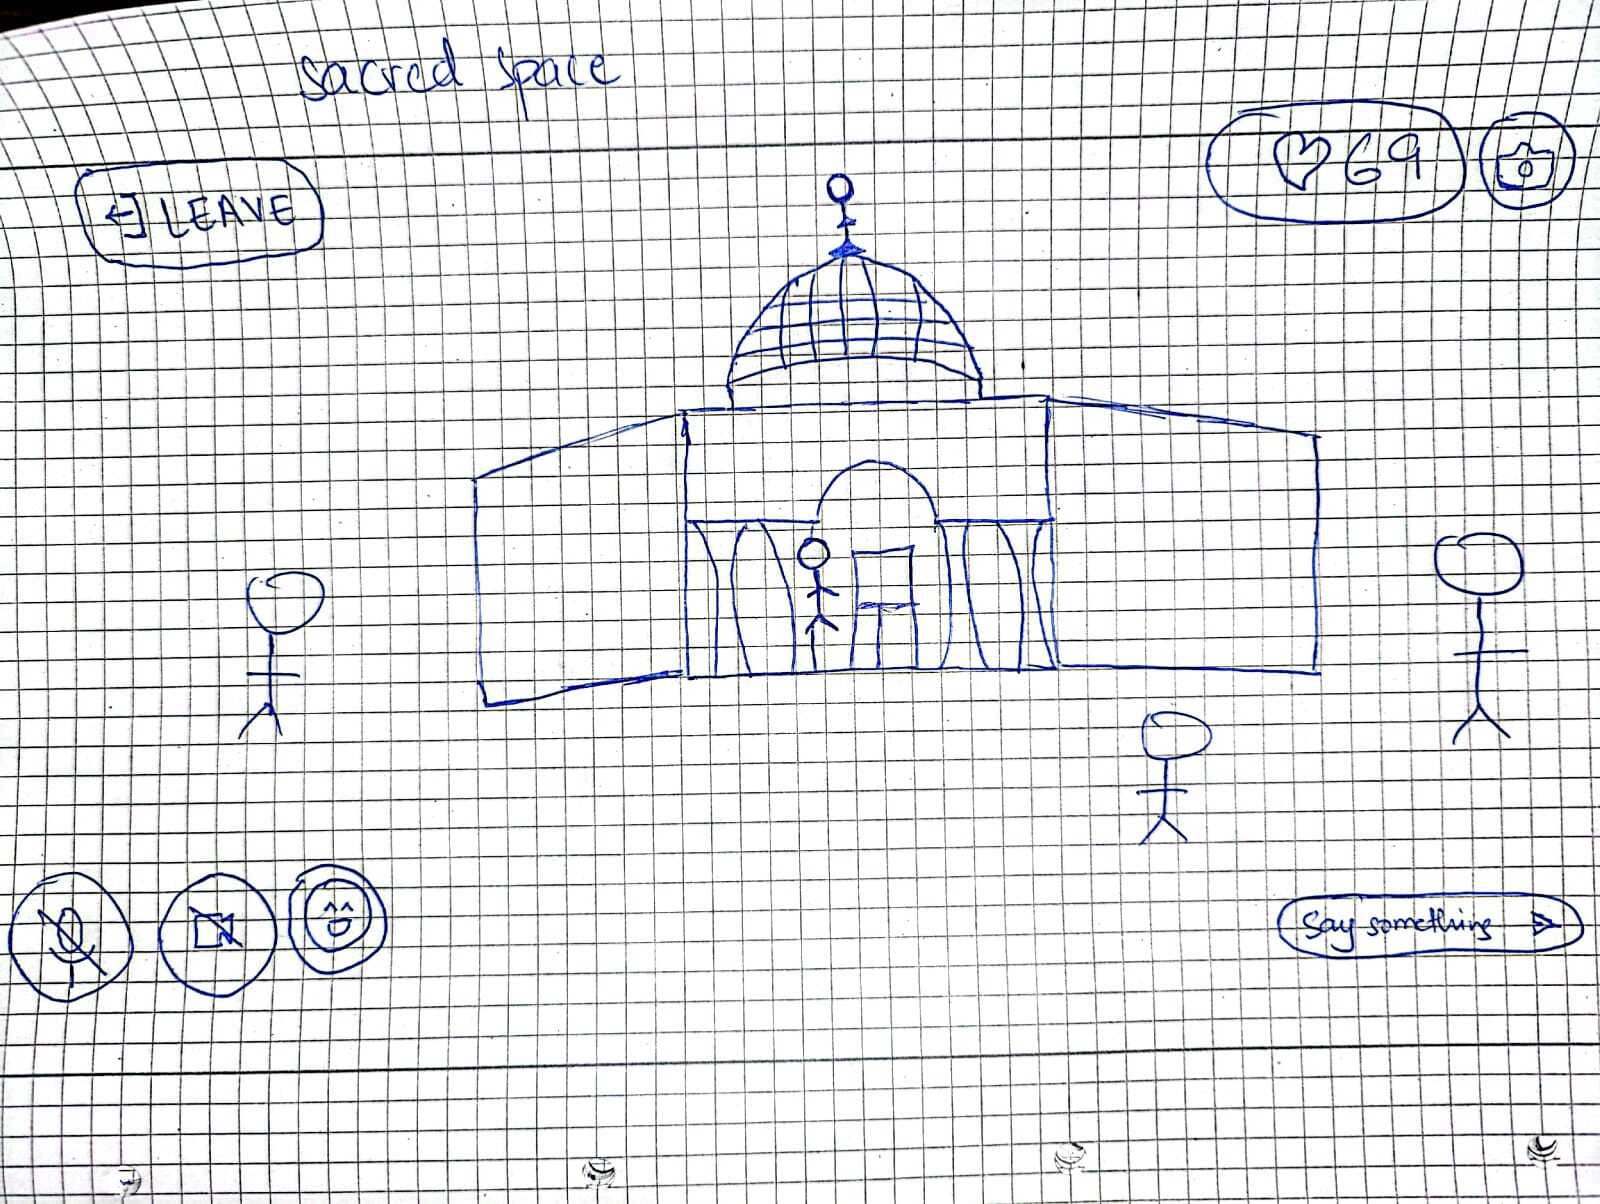 sacred space
LEAVE
69
Say something